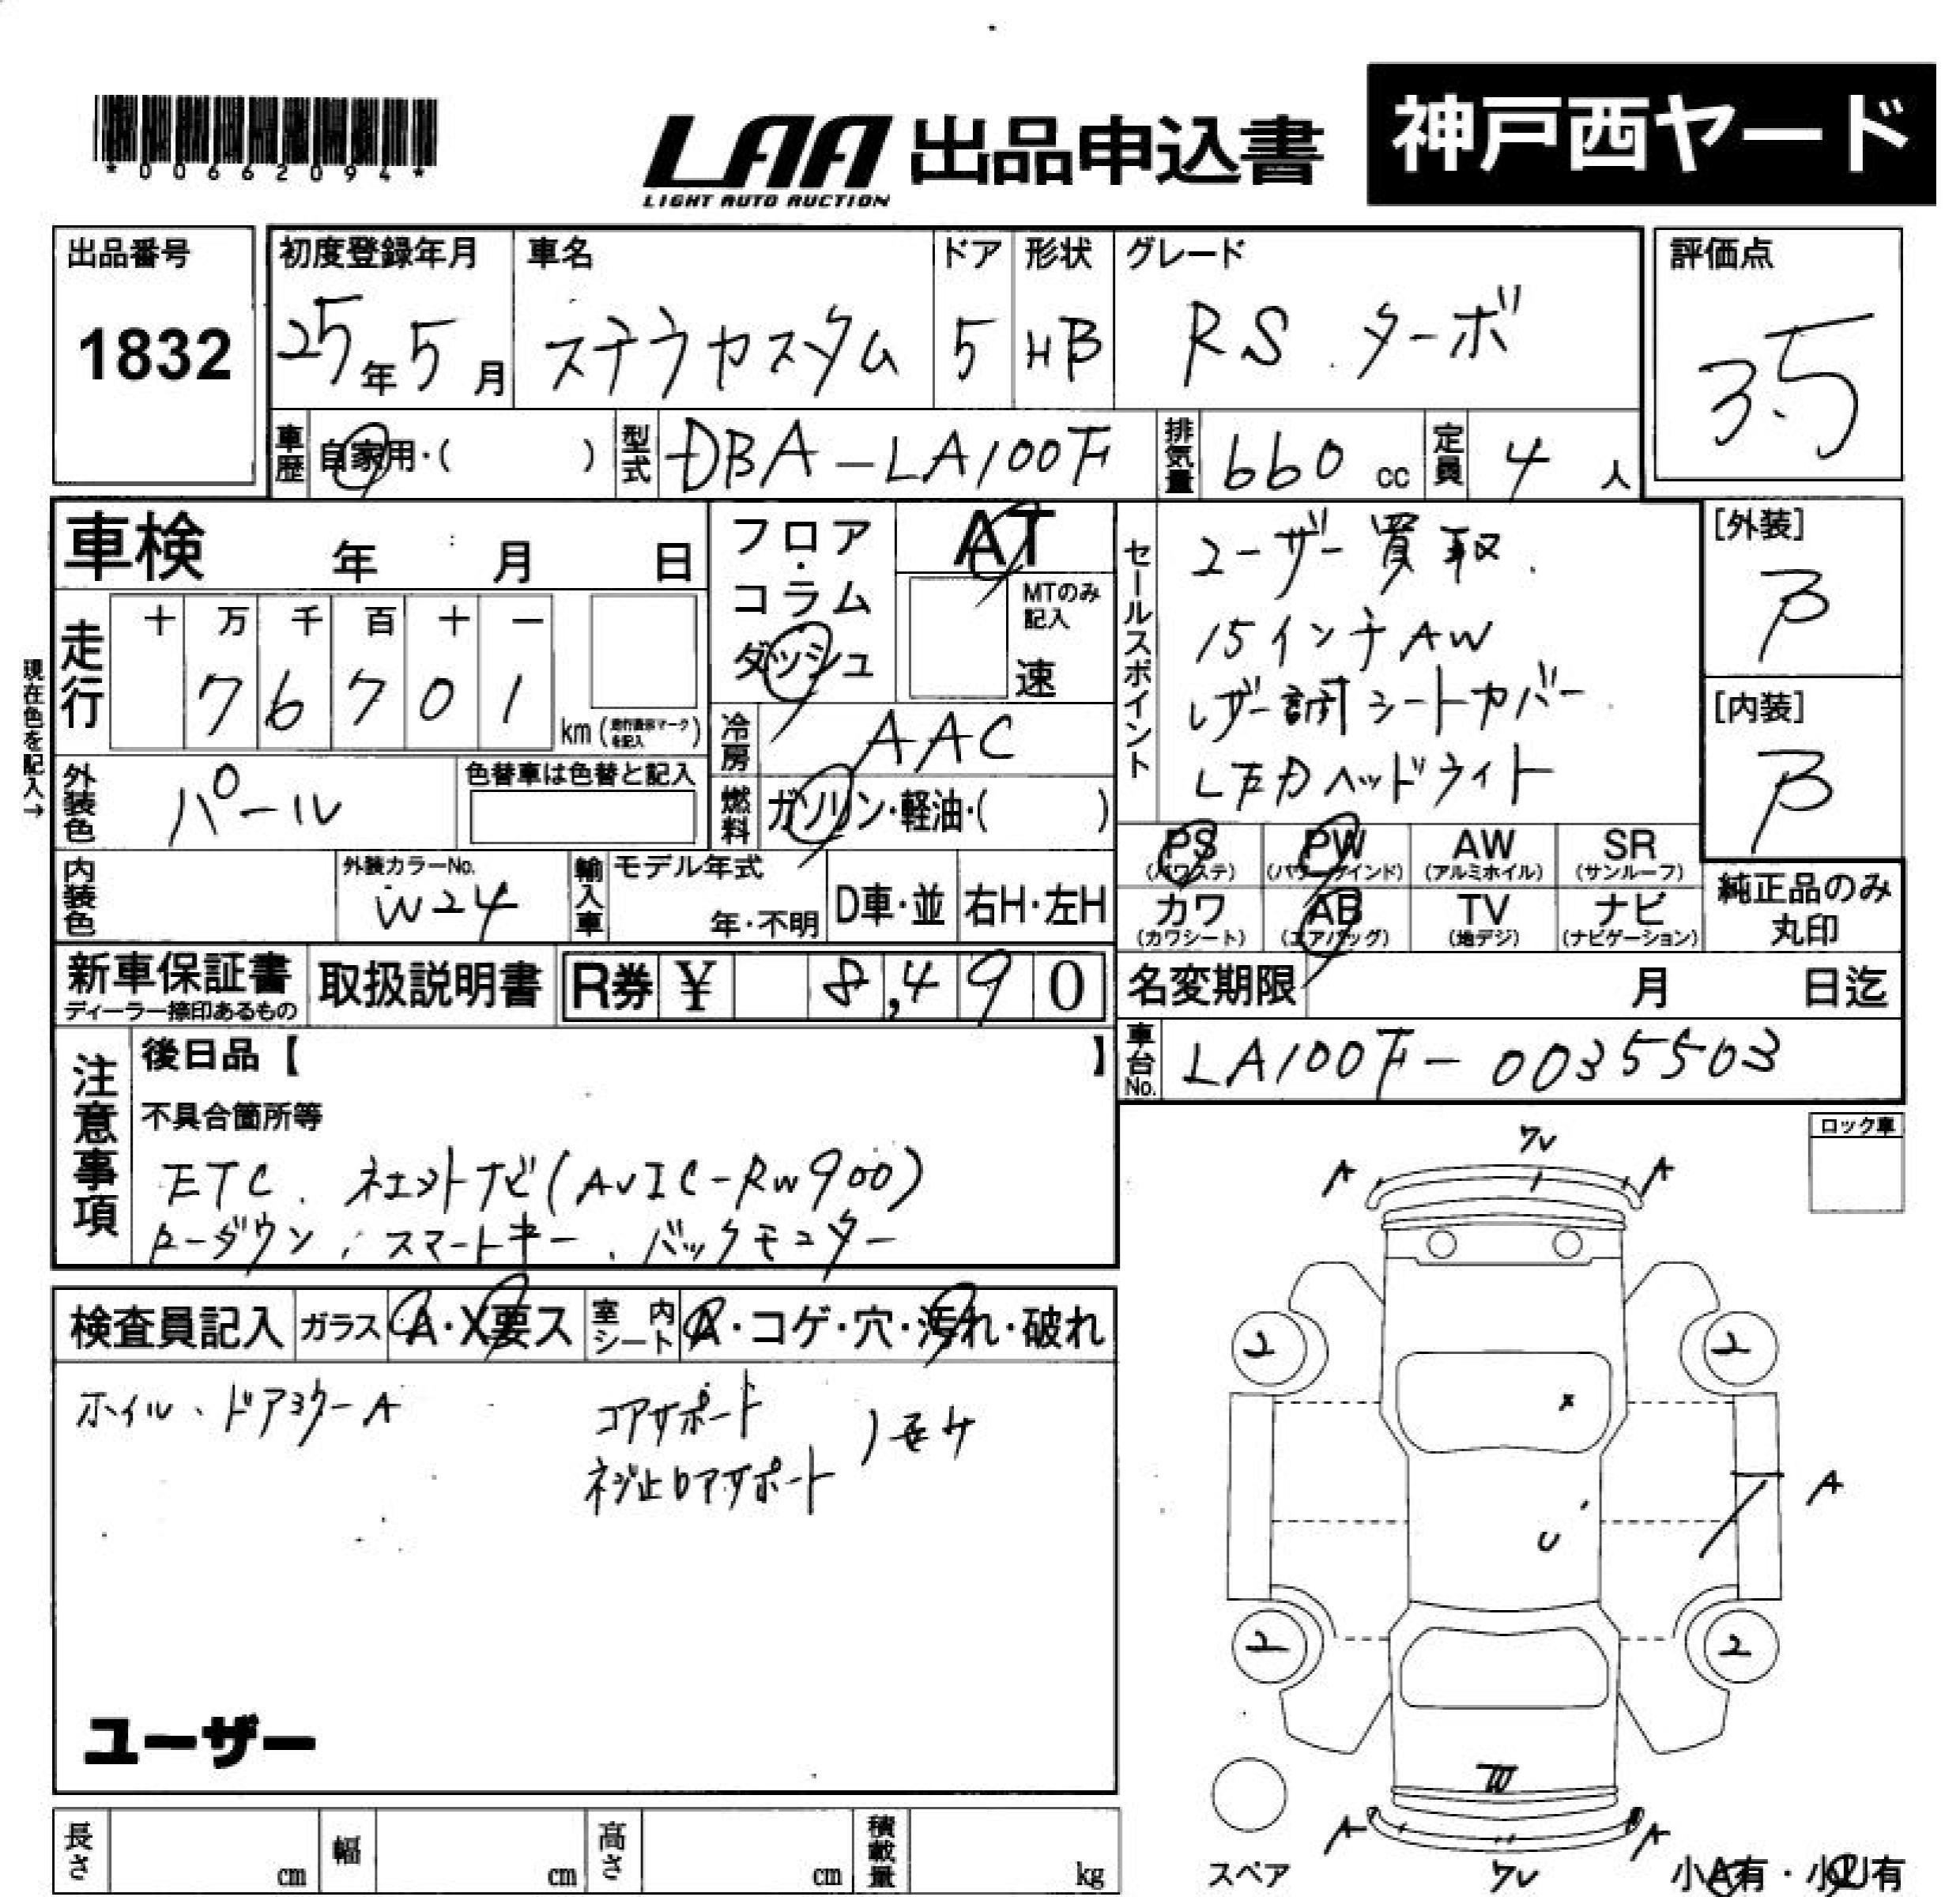 *00662094*
LAA 出品申込書
LIGHT AUTO AUCTION
神戸西ヤード
出品番号
1832
初度登録年月
25年5月
車名
ステラカスタム
ドア
5
形状
HB
グレード
RS ターボ
評価点
3.5
車歴 自家用・( )
型式 DBA-LA100F
排気量 660 cc
定員 4 人
車検 年 月 日
フロア・コラム
ダッシュ
AT
MTのみ記入
速
現在色を記入→
走行
十 万 千 百 十 一
7 6 7 0 1
km
冷房 AAC
燃料 ガソリン・軽油・( )
外装色 パール
色替車は色替と記入
内装色
外装カラーNo.
W24
輸入車
モデル年式
年・不明
D車・並
右H・左H
セールスポイント
ユーザー買取.
15インチAW
レザー調シートカバー
LEDヘッドライト
[外装]
B
[内装]
B
PS (パワステ)
PW (パワーウインド)
AW (アルミホイル)
SR (サンルーフ)
カワ (カワシート)
AB (エアバッグ)
TV (地デジ)
ナビ (ナビゲーション)
純正品のみ
丸印
新車保証書
ディーラー捺印あるもの
取扱説明書
R券 ¥ 8,490
名変期限 月 日迄
車台No. LA100F-0035503
注意事項
後日品【 】
不具合箇所等
ETC. 社外ナビ(AVIC-RW900)
ローダウン、スマートキー、バックモニター
検査員記入
ガラス A・X要ス
室内シート A・コゲ・穴・汚れ・破れ
ホイル、ドアミラーA
コアサポート
ネジ止コアサポート
ユーザー
ロック車
ワレ
A A
2 2
X
A
U
2 2
A A
ワレ
スペア
小A有・小U有
長さ cm
幅 cm
高さ cm
積載量 kg